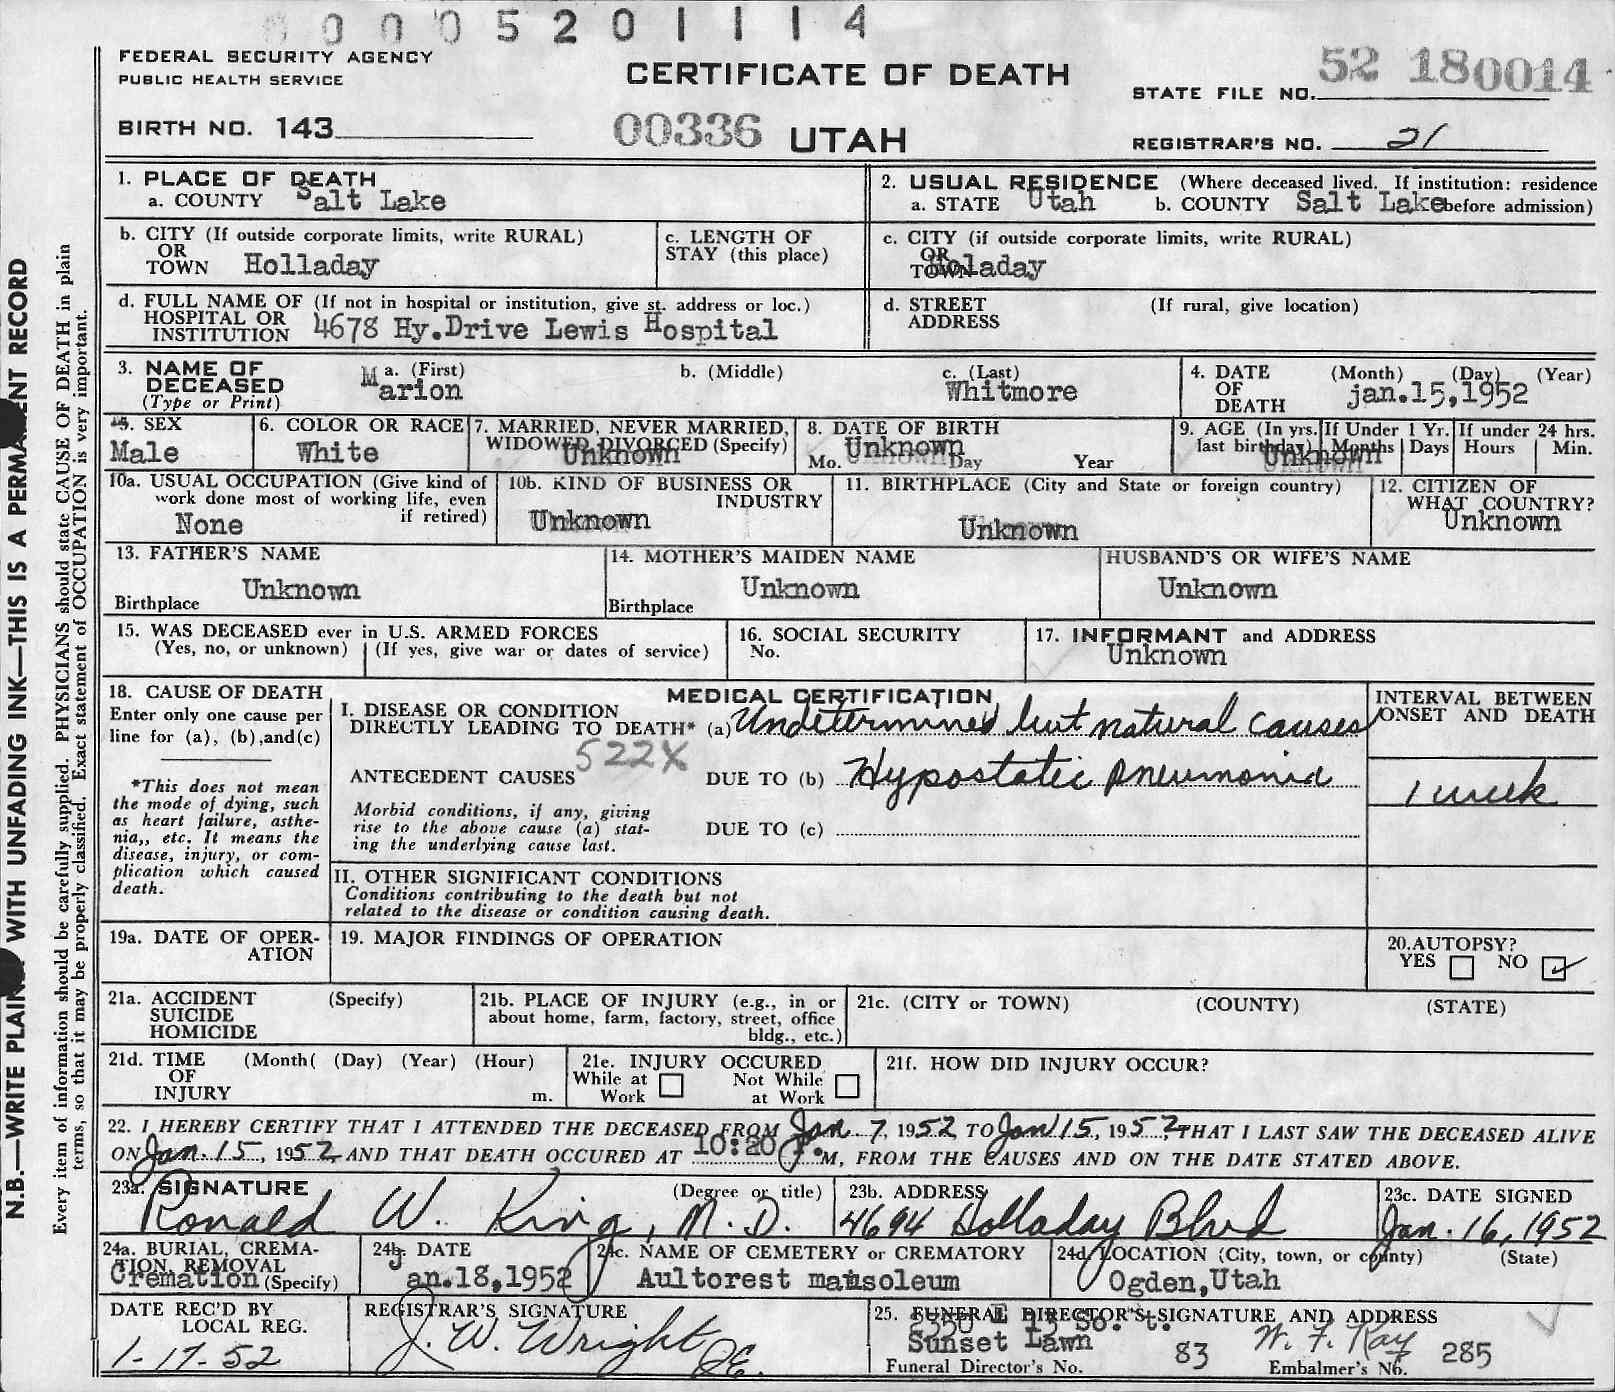 0 0 0 5 2 0 1 1 1 4
FEDERAL SECURITY AGENCY
PUBLIC HEALTH SERVICE
CERTIFICATE OF DEATH
STATE FILE NO. 52 18 0014
BIRTH NO. 143
00336 UTAH
REGISTRAR'S NO. 21
1. PLACE OF DEATH
a. COUNTY Salt Lake
2. USUAL RESIDENCE (Where deceased lived. If institution: residence
a. STATE Utah b. COUNTY Salt Lake before admission)
b. CITY (If outside corporate limits, write RURAL)
OR
TOWN Holladay
c. LENGTH OF
STAY (this place)
c. CITY (if outside corporate limits, write RURAL)
OR
TOWN Holaday
d. FULL NAME OF (If not in hospital or institution, give st. address or loc.)
HOSPITAL OR
INSTITUTION 4678 Hy.Drive Lewis Hospital
d. STREET (If rural, give location)
ADDRESS
3. NAME OF
DECEASED
(Type or Print)
a. (First) b. (Middle) c. (Last)
Marion Whitmore
4. DATE (Month) (Day) (Year)
OF
DEATH jan.15,1952
5. SEX
Male
6. COLOR OR RACE
White
7. MARRIED, NEVER MARRIED,
WIDOWED DIVORCED (Specify)
Unknown
8. DATE OF BIRTH
Unknown
Mo. Day Year
9. AGE (In yrs. If Under 1 Yr. If under 24 hrs.
last birthday) Months Days Hours Min.
Unknown
10a. USUAL OCCUPATION (Give kind of
work done most of working life, even
if retired)
None
10b. KIND OF BUSINESS OR
INDUSTRY
Unknown
11. BIRTHPLACE (City and State or foreign country)
Unknown
12. CITIZEN OF
WHAT COUNTRY?
Unknown
13. FATHER'S NAME
Unknown
Birthplace
14. MOTHER'S MAIDEN NAME
Unknown
Birthplace
HUSBAND'S OR WIFE'S NAME
Unknown
15. WAS DECEASED ever in U.S. ARMED FORCES
(Yes, no, or unknown) (If yes, give war or dates of service)
16. SOCIAL SECURITY
No.
17. INFORMANT and ADDRESS
Unknown
18. CAUSE OF DEATH
Enter only one cause per
line for (a), (b),and(c)
*This does not mean
the mode of dying, such
as heart failure, asthe-
nia,, etc. It means the
disease, injury, or com-
plication which caused
death.
MEDICAL CERTIFICATION
I. DISEASE OR CONDITION
DIRECTLY LEADING TO DEATH* (a) Undetermined but natural causes
522X
ANTECEDENT CAUSES DUE TO (b) Hypostatic pneumonia
Morbid conditions, if any, giving
rise to the above cause (a) stat-
ing the underlying cause last.
DUE TO (c)
INTERVAL BETWEEN
ONSET AND DEATH
1 week
II. OTHER SIGNIFICANT CONDITIONS
Conditions contributing to the death but not
related to the disease or condition causing death.
19a. DATE OF OPER-
ATION
19. MAJOR FINDINGS OF OPERATION
20.AUTOPSY?
YES NO
21a. ACCIDENT (Specify)
SUICIDE
HOMICIDE
21b. PLACE OF INJURY (e.g., in or
about home, farm, factory, street, office
bldg., etc.)
21c. (CITY or TOWN) (COUNTY) (STATE)
21d. TIME (Month( (Day) (Year) (Hour)
OF
INJURY m.
21e. INJURY OCCURED
While at Not While
Work at Work
21f. HOW DID INJURY OCCUR?
22. I HEREBY CERTIFY THAT I ATTENDED THE DECEASED FROM Jan 7, 1952 TO Jan 15, 1952, THAT I LAST SAW THE DECEASED ALIVE
ON Jan. 15, 1952, AND THAT DEATH OCCURED AT 10:20 P.M, FROM THE CAUSES AND ON THE DATE STATED ABOVE.
23a. SIGNATURE (Degree or title)
Ronald W. King, M.D.
23b. ADDRESS
4694 Holladay Blvd
23c. DATE SIGNED
Jan. 16, 1952
24a. BURIAL, CREMA-
TION, REMOVAL
Cremation (Specify)
24b. DATE
Jan.18,1952
24c. NAME OF CEMETERY or CREMATORY
Aultorest mausoleum
24d. LOCATION (City, town, or county) (State)
Ogden,Utah
DATE REC'D BY
LOCAL REG.
1-17-52
REGISTRAR'S SIGNATURE
J. W. Wright
25. FUNERAL DIRECTOR'S SIGNATURE AND ADDRESS
2350 E 13 So. t.
Sunset Lawn W. F. Kay
Funeral Director's No. 83 Embalmer's No. 285
N.B.—WRITE PLAINLY WITH UNFADING INK—THIS IS A PERMANENT RECORD
Every item of information should be carefully supplied. PHYSICIANS should state CAUSE OF DEATH in plain
terms, so that it may be properly classified. Exact statement of OCCUPATION is very important.